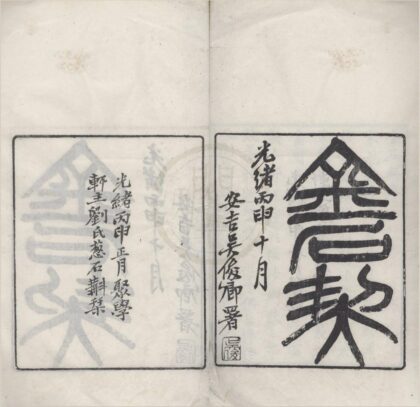 金石契
光緒丙申十月
安吉吳俊卿署
光緒丙申正月聚學
軒主劉氏葱石斠栞